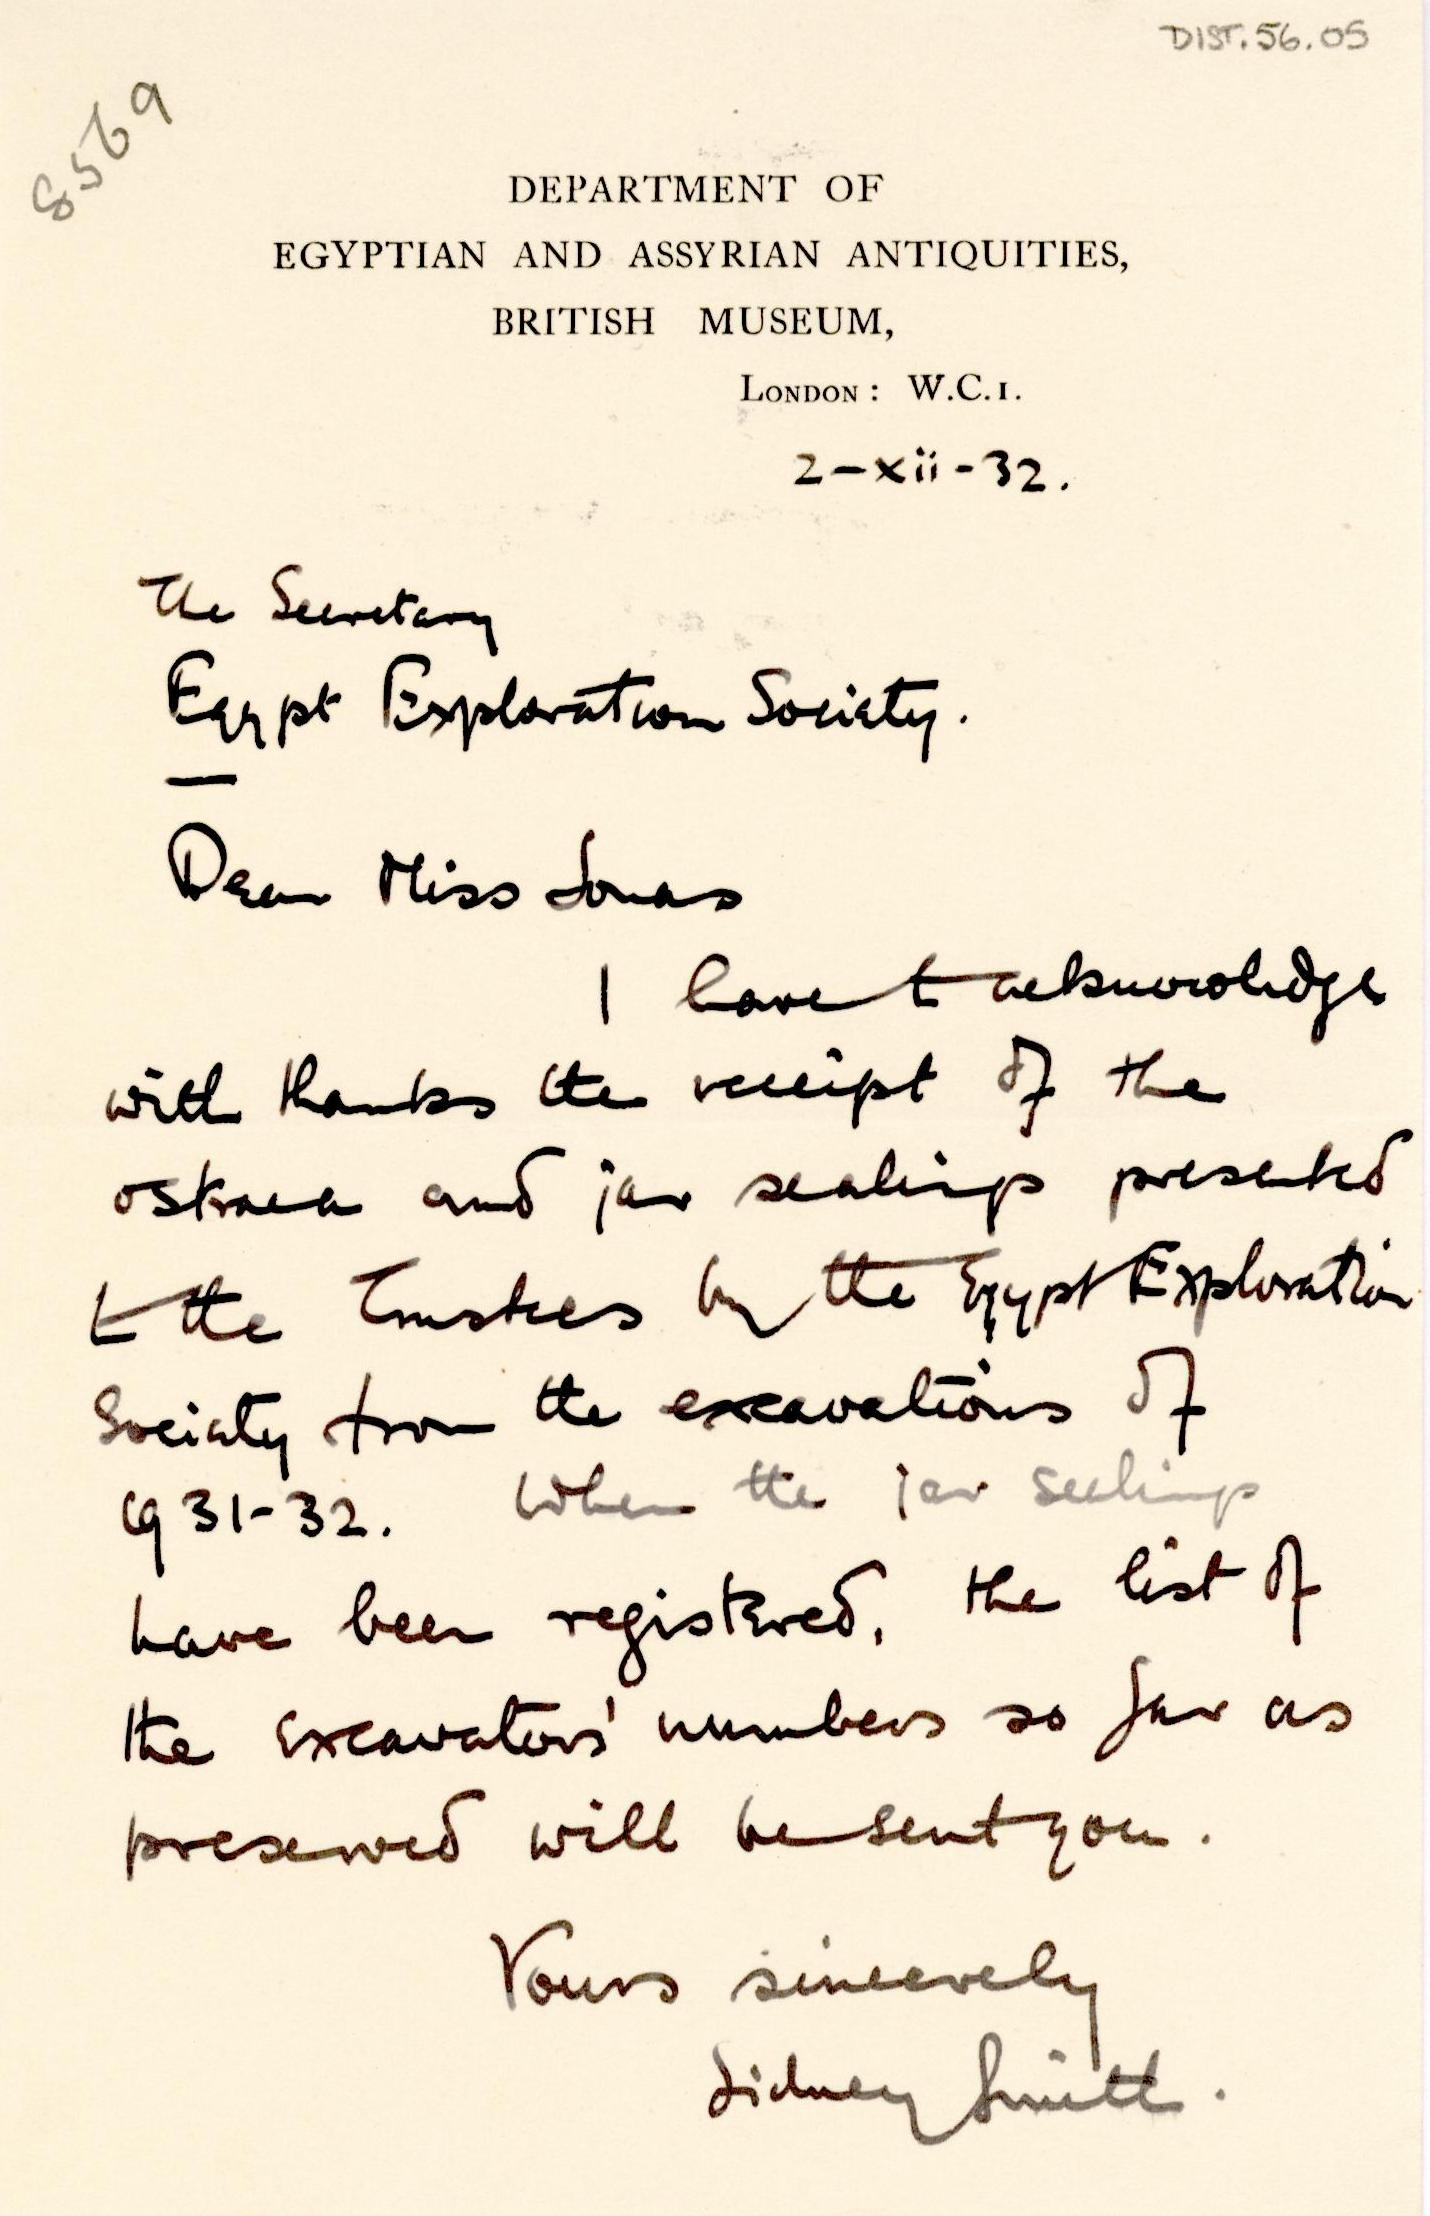 DIST.56.05
8569
DEPARTMENT OF
EGYPTIAN AND ASSYRIAN ANTIQUITIES,
BRITISH MUSEUM,
LONDON: W.C.1.
2-xii-32.
The Secretary
Egypt Exploration Society.
Dear Miss Jonas
I have to acknowledge
with thanks the receipt of the
ostraca and jar sealings presented
to the Trustees by the Egypt Exploration
Society from the excavations of
1931-32. When the jar sealings
have been registered, the list of
the excavators' numbers so far as
preserved will be sent you.
Yours sincerely
Sidney Smith.